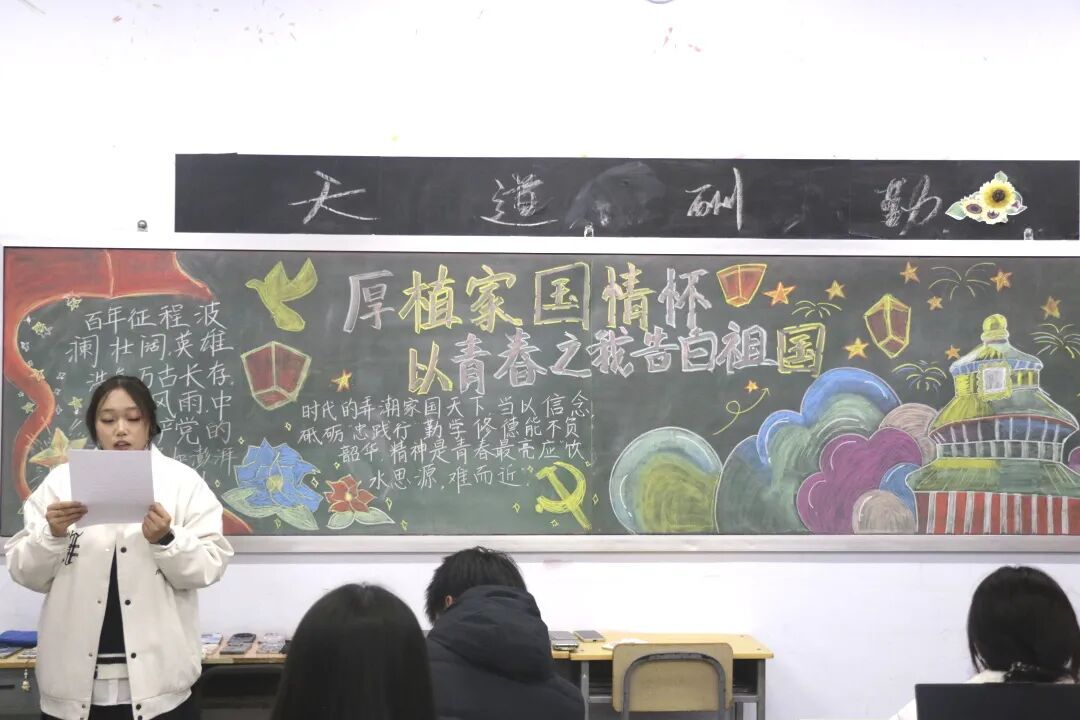 天 道 酬 勤
厚植家国情怀
以青春之我告白祖国
百年征程,波
澜壮阔,英雄
浩气万古长存,
风雨,中
党的
澎湃
时代的弄潮家国天下,当以信念
砥砺,忠践行,勤学修德能不负
韶华,精神是青春最亮应饮
水思源,难而近.